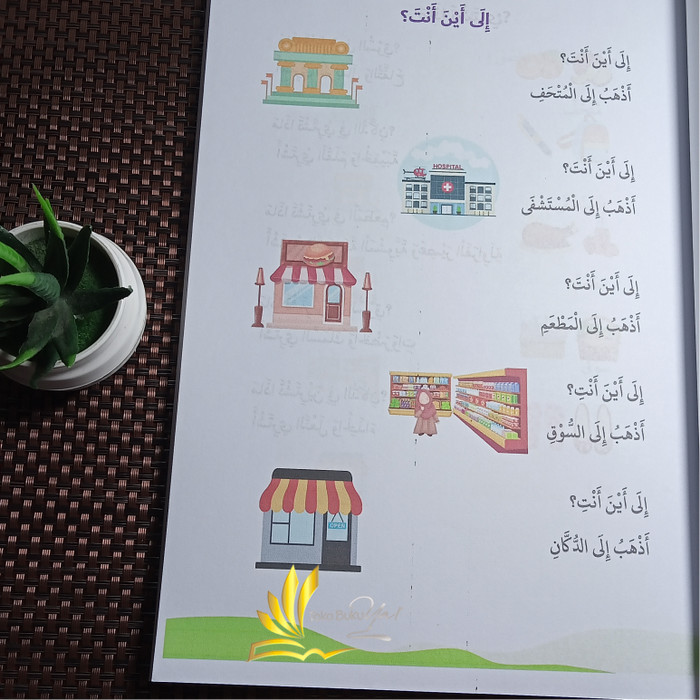 إِلَى أَيْنَ أَنْتَ؟
إِلَى أَيْنَ أَنْتَ؟
أَذْهَبُ إِلَى الْمُتْحَفِ
إِلَى أَيْنَ أَنْتَ؟
HOSPITAL
أَذْهَبُ إِلَى الْمُسْتَشْفَى
إِلَى أَيْنَ أَنْتَ؟
أَذْهَبُ إِلَى الْمَطْعَمِ
إِلَى أَيْنَ أَنْتِ؟
أَذْهَبُ إِلَى السُّوْقِ
إِلَى أَيْنَ أَنْتِ؟
OPEN
أَذْهَبُ إِلَى الدُّكَّانِ